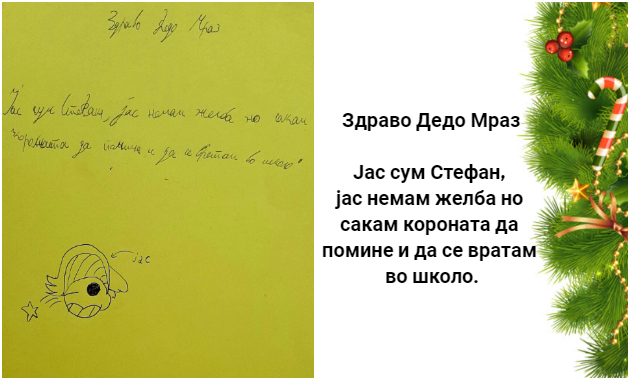 Здраво Дедо Мраз
Јас сум Стефан, јас немам желба но сакам
короната да помине и да се вратам во школо
јас
Здраво Дедо Мраз
Јас сум Стефан,
јас немам желба но
сакам короната да
помине и да се вратам
во школо.